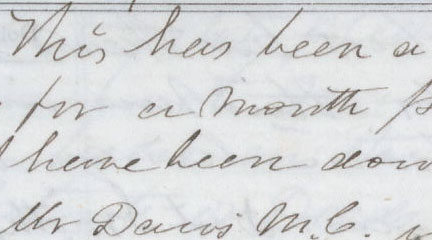 This has been a
for a month
have been
Mr Davis M.C.